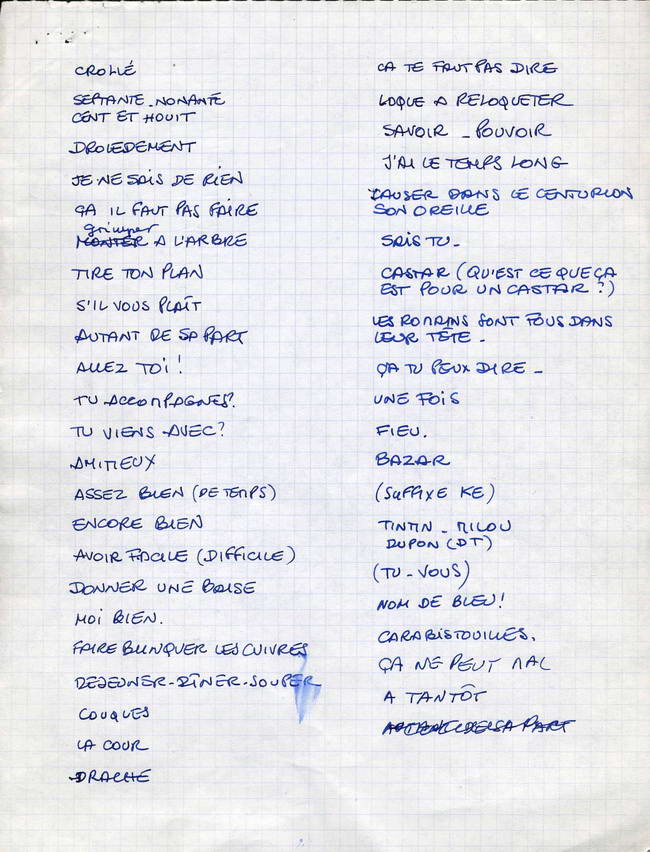 CROLLÉ
SEPTANTE - NONANTE
CENT ET HOUIT
DROLEDEMENT
JE NE SAIS DE RIEN
ÇA IL FAUT PAS FAIRE
grimper
MONTER A L'ARBRE
TIRE TON PLAN
S'IL VOUS PLAÎT
AUTANT DE SA PART
ALLEZ TOI !
TU ACCOMPAGNES ?
TU VIENS AVEC ?
AMITIEUX
ASSEZ BIEN (DE TEMPS)
ENCORE BIEN
AVOIR FACILE (DIFFICILE)
DONNER UNE BAISE
MOI BIEN.
FAIRE BLINQUER LES CUIVRES
DEJEUNER - DÎNER - SOUPER
COUQUES
LA COUR
DRACHE
CA TE FAUT PAS DIRE
LOQUE A RELOQUETER
SAVOIR - POUVOIR
J'AI LE TEMPS LONG
CAUSER DANS LE CENTURION
SON OREILLE
SAIS TU -
CASTAR (QU'EST CE QUE ÇA
EST POUR UN CASTAR ?)
LES ROMAINS SONT FOUS DANS
LEUR TÊTE -
ÇA TU PEUX DIRE -
UNE FOIS
FIEU.
BAZAR
(SUFFIXE KE)
TINTIN - MILOU
DUPON (DT)
(TU - VOUS)
NOM DE BLEU !
CARABISTOUILLES.
ÇA NE PEUT MAL
A TANTÔT
AUTANT DE SA PART